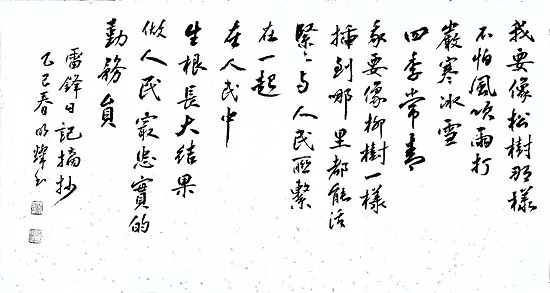 我要像松樹那樣
不怕風吹雨打
嚴寒冰雪
四季常青
我要像柳樹一樣
插到哪里都能活
緊緊与人民联繫
在一起
在人民中
生根長大結果
做人民最忠實的
勤務員
雷鋒日記摘抄
乙巳春明輝书